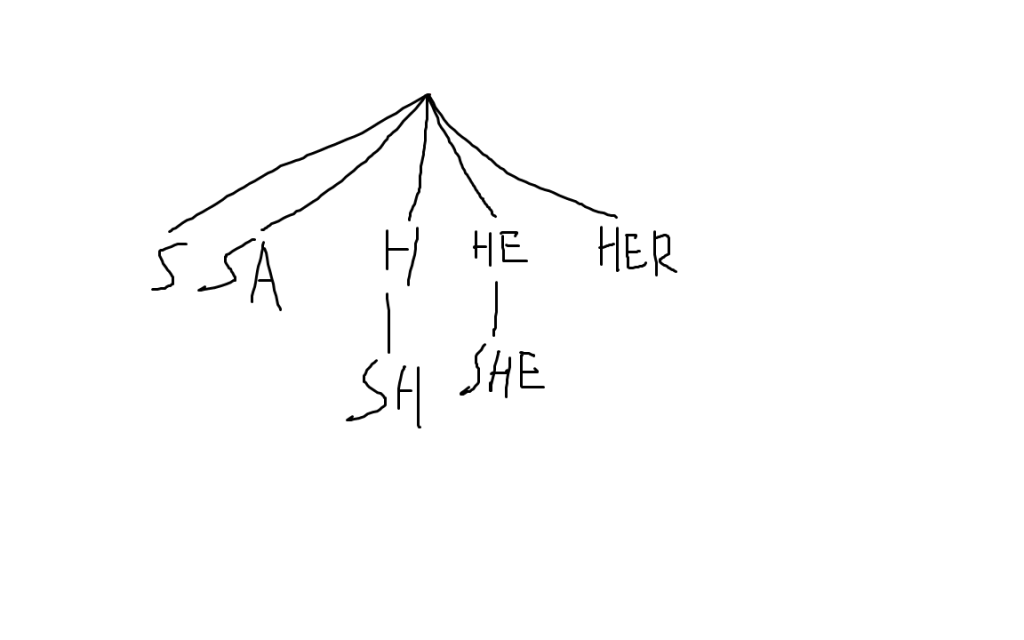 S SA H HE HER
SH SHE